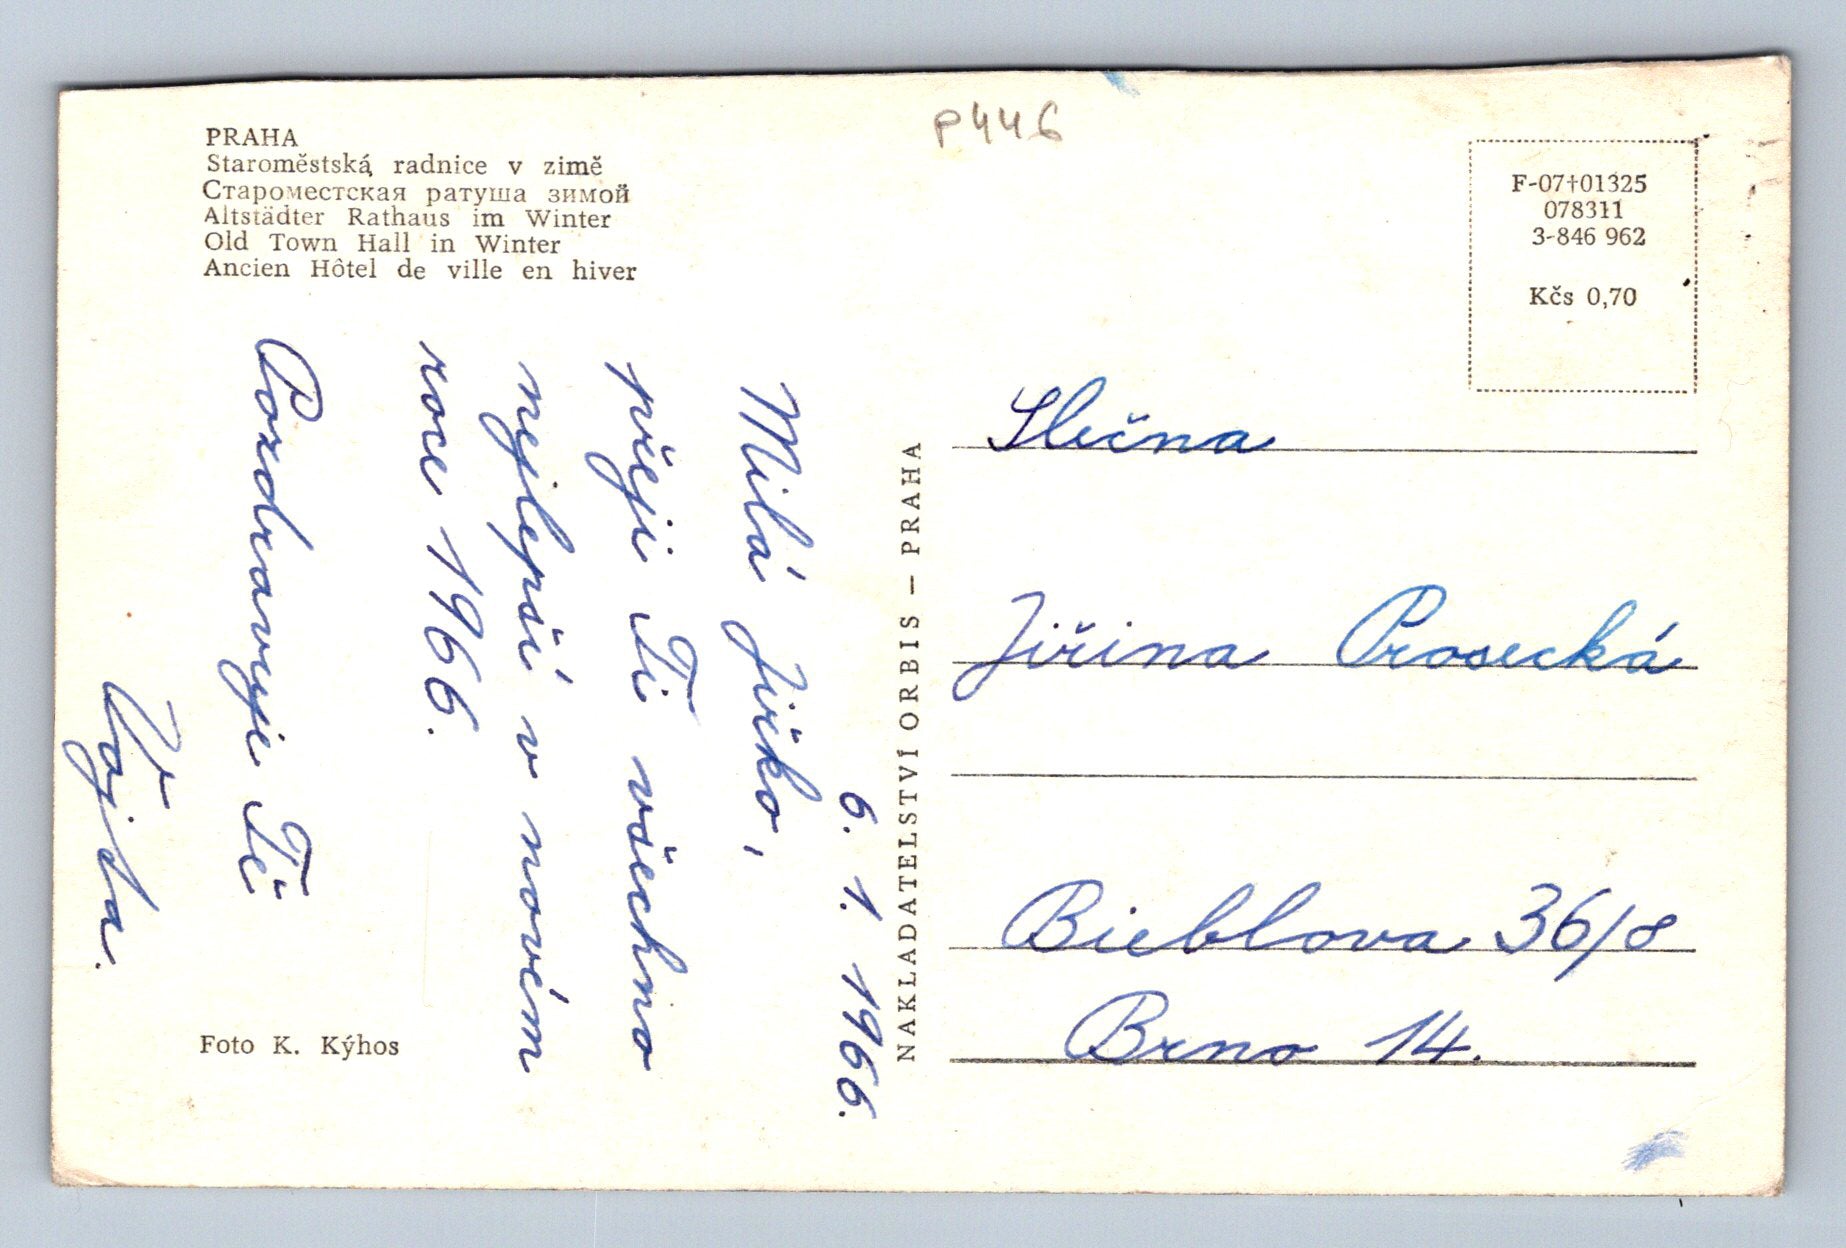 PRAHA
Staroměstská radnice v zimě
Староместская ратуша зимой
Altstädter Rathaus im Winter
Old Town Hall in Winter
Ancien Hôtel de ville en hiver
P446
F-07†01325
078311
3-846 962
Kčs 0,70
6. 1. 1966.
Milá Jiřko,
přeji Ti všechno
nejlepší v novém
roce 1966.
Pozdravuje Tě
Vojta.
Foto K. Kýhos
NAKLADATELSTVÍ ORBIS — PRAHA
Slečna
Jiřina Prosecká
Bieblova 36/8
Brno 14.